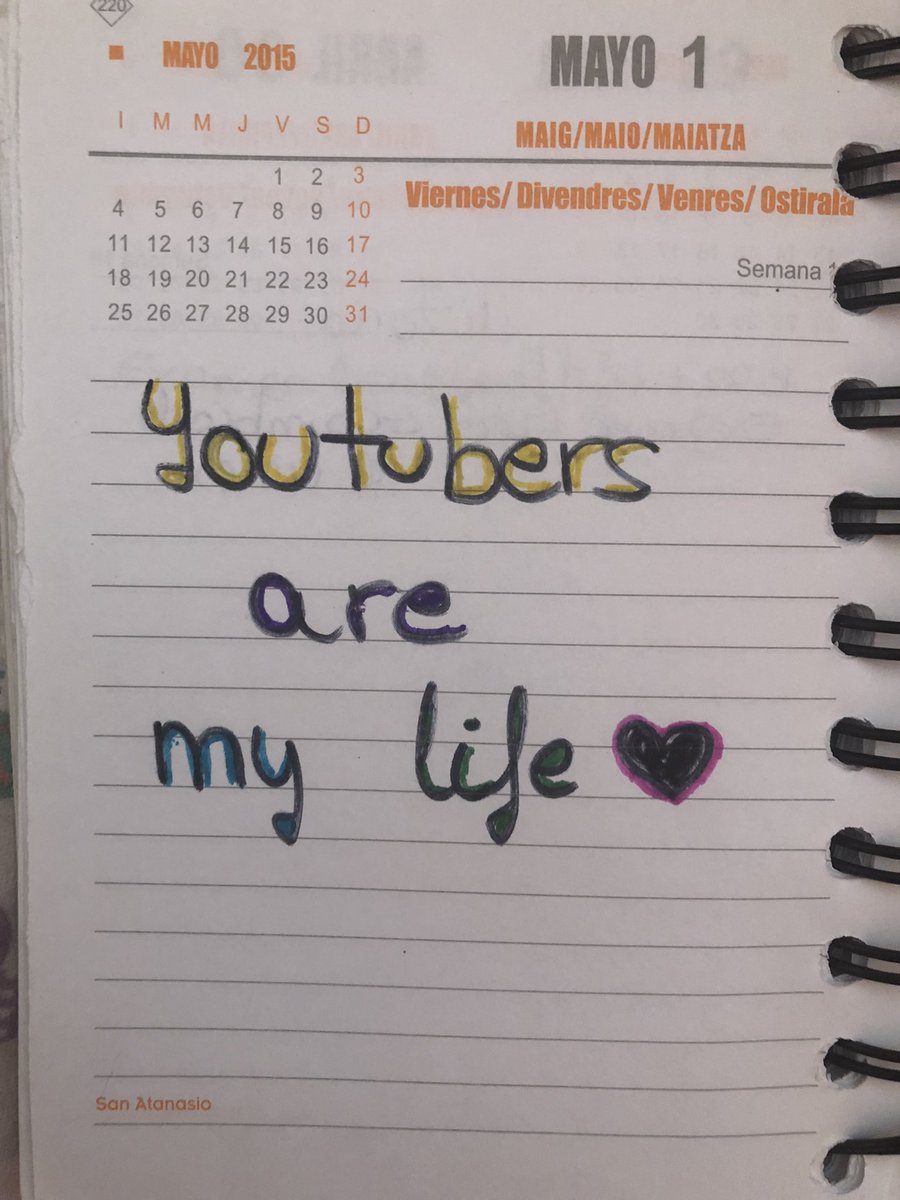 220
MAYO 2015
MAYO 1
I M M J V S D
MAIG/MAIO/MAIATZA
1 2 3
Viernes/ Divendres/ Venres/ Ostirala
4 5 6 7 8 9 10
11 12 13 14 15 16 17
Semana
18 19 20 21 22 23 24
25 26 27 28 29 30 31
Youtubers
are
my life
San Atanasio